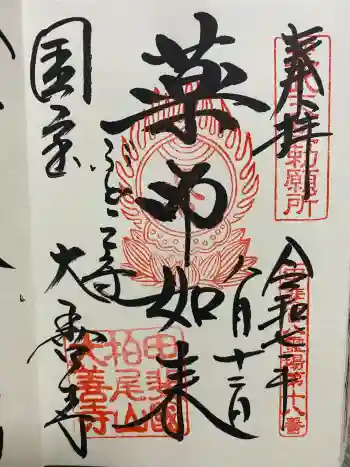 奉拝
勅願所
令和七年
霊場第十八番
八月十二日
薬師如来
ぶどう寺
国宝
大善寺
甲斐國
柏尾山
大善寺